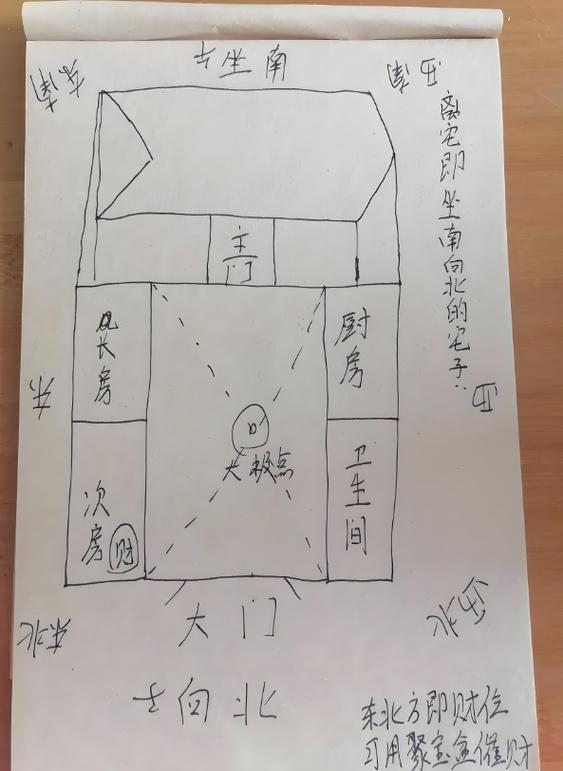 坐南
东南
西南
离宅即坐南向北的宅子:
主门
长房
厨房
东
西
太极点
次房
财
卫生间
大门
东北
西北
向北
东北方即财位
可用聚宝盆催财